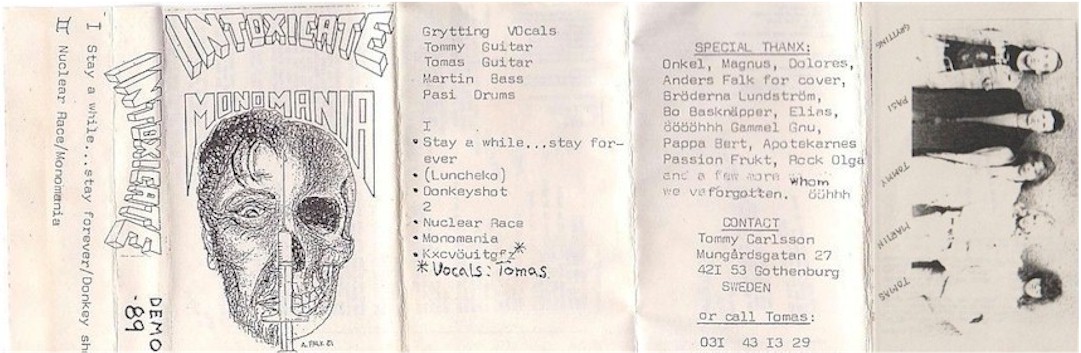 I Stay a while...stay forever/Donkey sh
II Nuclear Race/Monomania
INTOXICATE
DEMO
-89
INTOXICATE
MONOMANIA
A. FALK 89
Grytting VOcals
Tommy Guitar
Tomas Guitar
Martin Bass
Pasi Drums
I
• Stay a while...stay for-
ever
• (Luncheko)
• Donkeyshot
2
• Nuclear Race
• Monomania
• Kxcvöuitgfz*
* Vocals: Tomas
SPECIAL THANX:
Onkel, Magnus, Dolores,
Anders Falk for cover,
Bröderna Lundström,
Bo Basknäpper, Elias,
öööõhhh Gammel Gnu,
Pappa Bert, Apotekarnes
Passion Frukt, Rock Olga
and a few more whom
we vaforgotten. öühhh
CONTACT
Tommy Carlsson
Mungårdsgatan 27
42I 53 Gothenburg
SWEDEN
or call Tomas:
03I 43 I3 29
GRYTTING
PASI
TOMMY
MARTIN
TOMAS